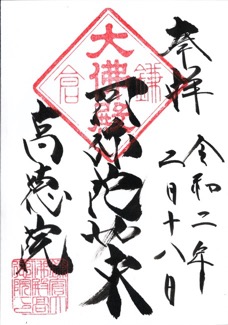 奉拝
令和二年
二月十八日
大佛殿
鎌倉
阿弥陀如来
高徳院